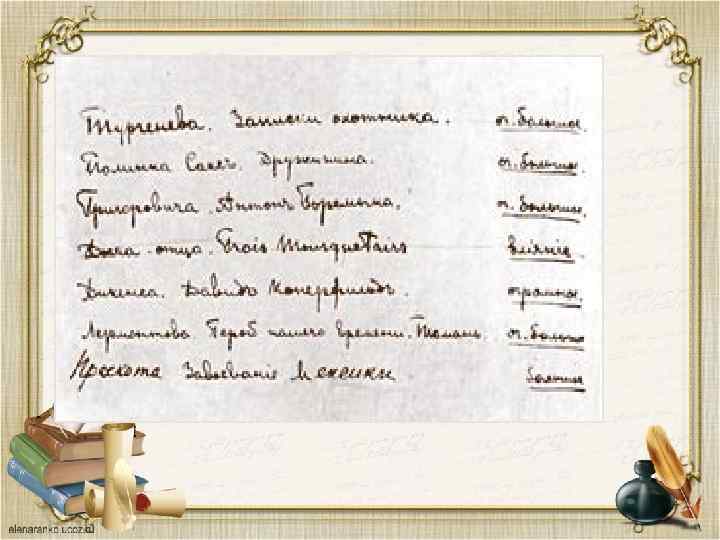 Тургенева. Записки охотника. о. большое.
Полинька Саксъ. Дружинина. о. большое.
Григоровича. Антонъ Горемыка. о. большое.
Дюма-отца. Trois Mousquetairs вліяніе
Диккенса. Давидъ Коперфильдъ. огромное.
Лермонтова. Герой нашего времени. Тамань. о. большое
Прескота Завоеваніе Мексики большое
elenaranko.ucoz.ru